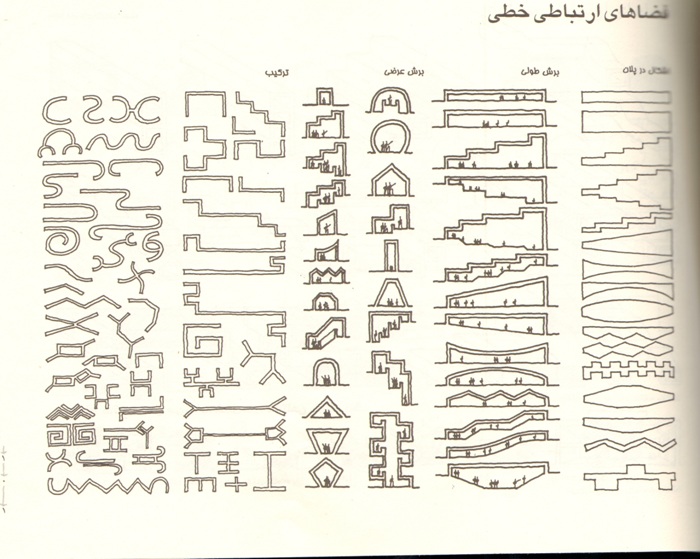 فضاهای ارتباطی خطی
اشکال در پلان
برش طولی
برش عرضی
ترکیب